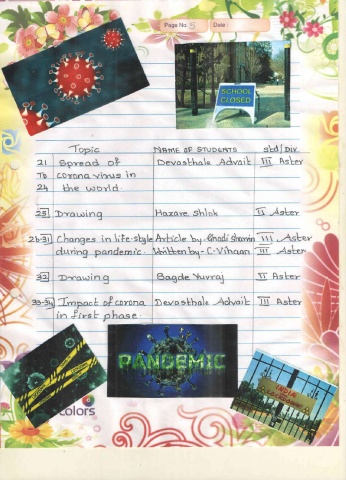 Page No. 5 Date:
SCHOOL
CLOSED
Topic NAME OF STUDENTS std/Div
21 Spread of Devasthale Advait III Aster
To corona virus in
24 the world.
25 Drawing Hazare Shlok II Aster
26-31 Changes in life-style Article by- III Aster
during pandemic. Written by- C. Vihaan III Aster
32 Drawing Bagde Yuvraj II Aster
33-34 Impact of corona Devasthale Advait III Aster
in first phase.
PANDEMIC
colors